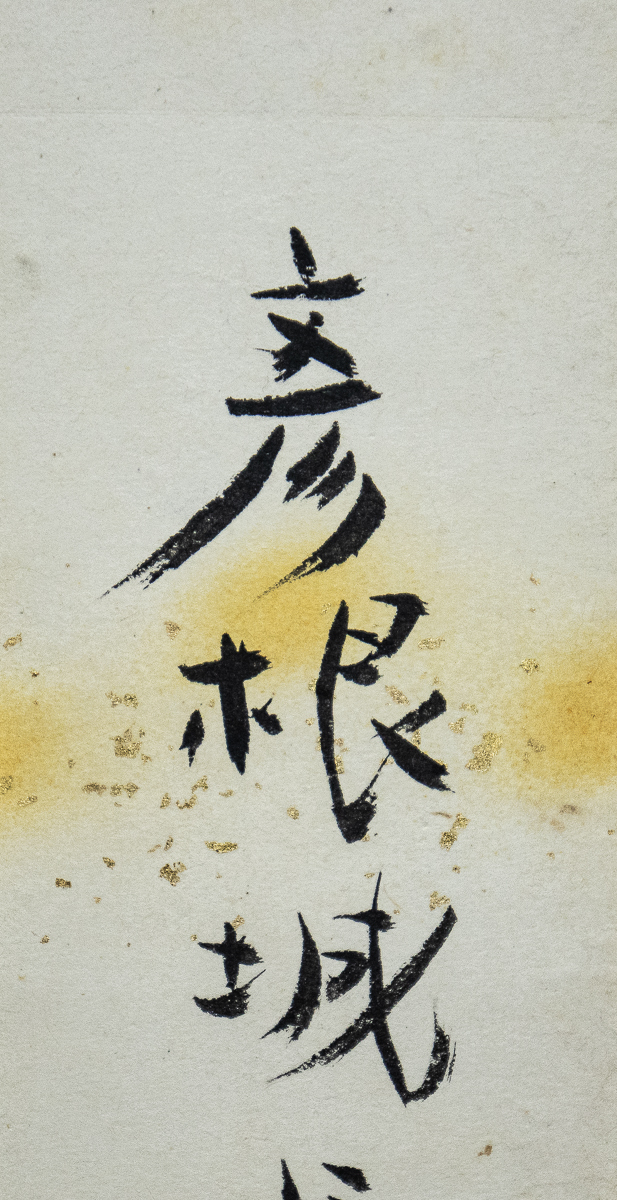 彦根城